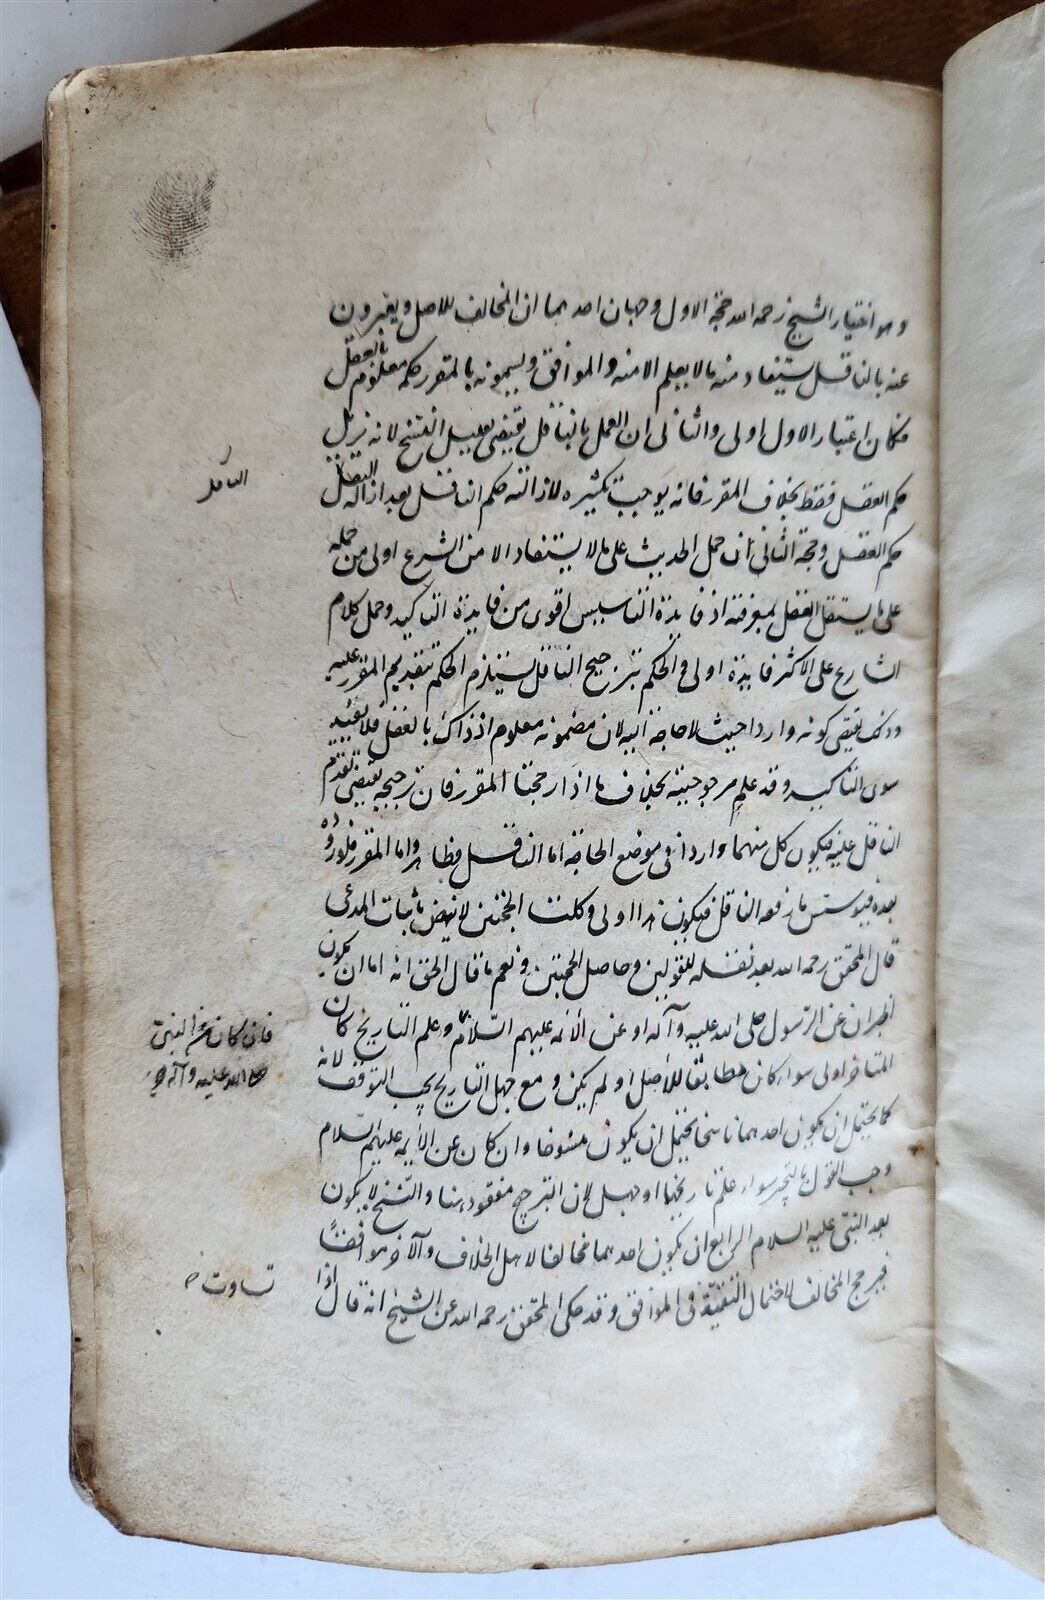 وهو اختيار الشيخ رحمه الله حجة الاول وجهان احدهما ان المخالف للاصل ويعبرون
عنه بالناقل يستفاد منه ما لا يعلم الا منه والموافق ويسمونه بالمقرر حكمه معلوم بالعقل
فكان اعتبار الاول اولى والثاني ان العمل بالناقل يقتضي تقليل النسخ لانه يزيل
حكم العقل فقط بخلاف المقرر فانه يوجب تكثيره لازالته حكم الناقل بعد ازالة الناقل
حكم العقل وحجة الثاني ان حمل الحديث على ما لا يستفاد الا من الشرع اولى من حمله
على ما يستقل العقل بمعرفته اذ فايدة التاسيس اقوى من فايدة التاكيد وحمل كلام
الشارع على الاكثر فايدة اولى والحكم بترجيح الناقل يستلزم الحكم بتقديم المقرر عليه
وذلك يقتضي كونه واردا حيث لا حاجة اليه لان مضمونه معلوم اذ ذاك بالعقل فلا يفيد
سوى التاكيد وقد علم مرجوحيته بخلاف ما اذا رجحنا المقرر فان ترجيحه يقتضي تقديم
الناقل عليه فيكون كل منهما واردا في موضع الحاجة اما الناقل فظاهر واما المقرر فلوروده
بعده فيؤسس ما رفعه الناقل فيكون هذا اولى وكلتا الحجتين لا ينهض باثبات المدعى
قال المحقق رحمه الله بعد نقله للقولين وحاصل الحجتين ونعم ما قال الحق انه اما ان يكون
الخبران عن الرسول صلى الله عليه وآله او عن الأئمة عليهم السلام وعلم التاريخ كان
المتاخر اولى سواء كان مطابقا للأصل او لم يكن ومع جهل التاريخ يجب التوقف لانه
كما يحتمل ان يكون احدهما ناسخا يحتمل ان يكون منسوخا وان كان عن الأئمة عليهم السلام
وجب القول بالتخيير سواء علم تاريخهما او جهل لان الترجيح مفقود هنا والنسخ لا يكون
بعد النبي عليه السلام الرابع ان يكون احدهما مخالفا لاهل الخلاف والآخر موافقا
فيرجح المخالف لاحتمال التقية في الموافق وقد حكى المحقق رحمه الله عن الشيخ انه قال اذا
الناقل
فان كان عن النبي
صلى الله عليه وآله
تساوت